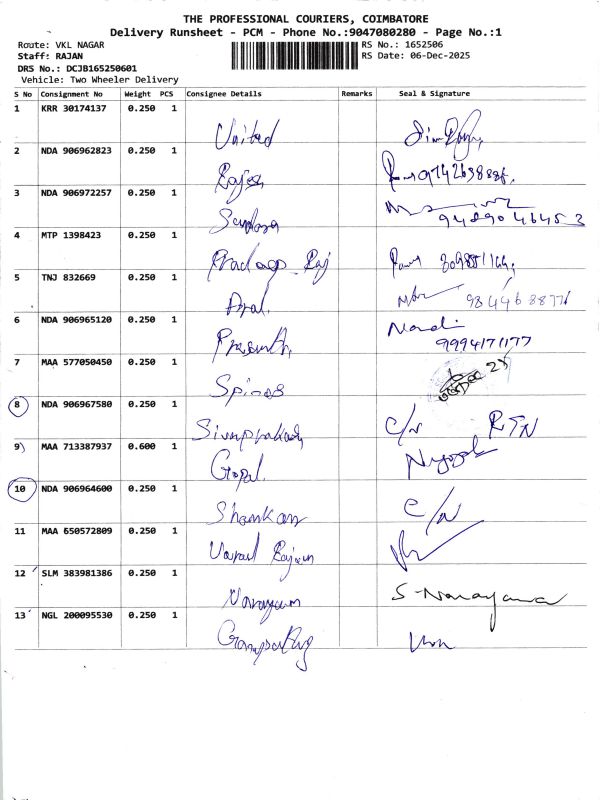 THE PROFESSIONAL COURIERS, COIMBATORE
Delivery Runsheet - PCM - Phone No.:9047080280 - Page No.:1
Route: VKL NAGAR RS No.: 1652506
Staff: RAJAN RS Date: 06-Dec-2025
DRS No.: DCJB165250601
Vehicle: Two Wheeler Delivery
S No Consignment No Weight PCS Consignee Details Remarks Seal & Signature
1 KRR 30174137 0.250 1
United
2 NDA 906962823 0.250 1
Rajesh
3 NDA 906972257 0.250 1
9489046453
4 MTP 1398423 0.250 1
Pradeep Raj
5 TNJ 832669 0.250 1
6 NDA 906965120 0.250 1
Nandi
Prasanth 9994171177
7 MAA 577050450 0.250 1
8 NDA 906967580 0.250 1
Sivaprakash C/N RTN
9 MAA 713387937 0.600 1
Gopal.
10 NDA 906964600 0.250 1
Shankar C/N
11 MAA 650572809 0.250 1
Varad Rajan
12 SLM 383981386 0.250 1
Narayanan S-Narayana
13 NGL 200095530 0.250 1